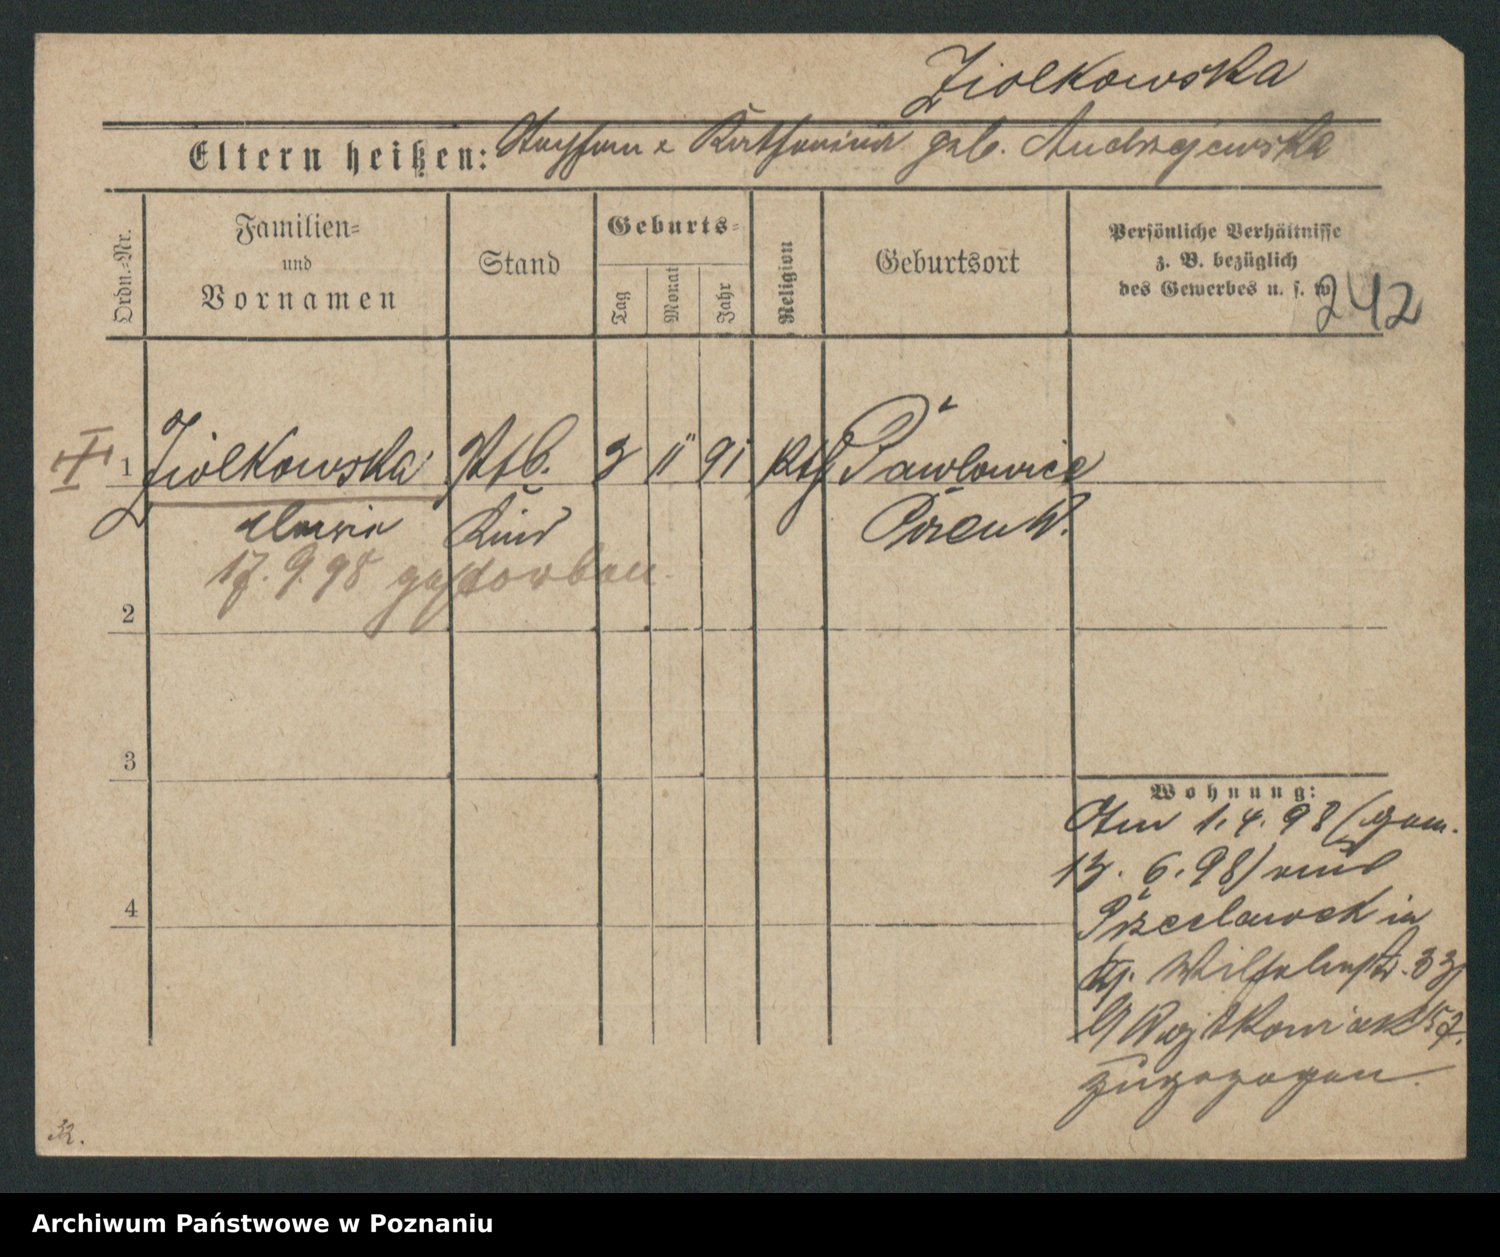 Ziolkowska
Eltern heißen: Stephan & Katharina geb. Andrzejewska
Ordn.-Nr.
Familien-
und
Vornamen
Stand
Geburts-
Tag
Monat
Jahr
Religion
Geburtsort
Persönliche Verhältnisse
z. B. bezüglich
des Gewerbes u. s. w.
242
1 Ziolkowska 3 11 91 kth Pawlowice
Marie Kind Posen W.
17.9.98 gestorben
2
3
4
Wohnung:
Am 1.4.98 (gem.
13.6.98) aus
Przeclawek in
Wilhelmstr. 33
b/ Wojtkowiak
zugezogen.
Archiwum Państwowe w Poznaniu